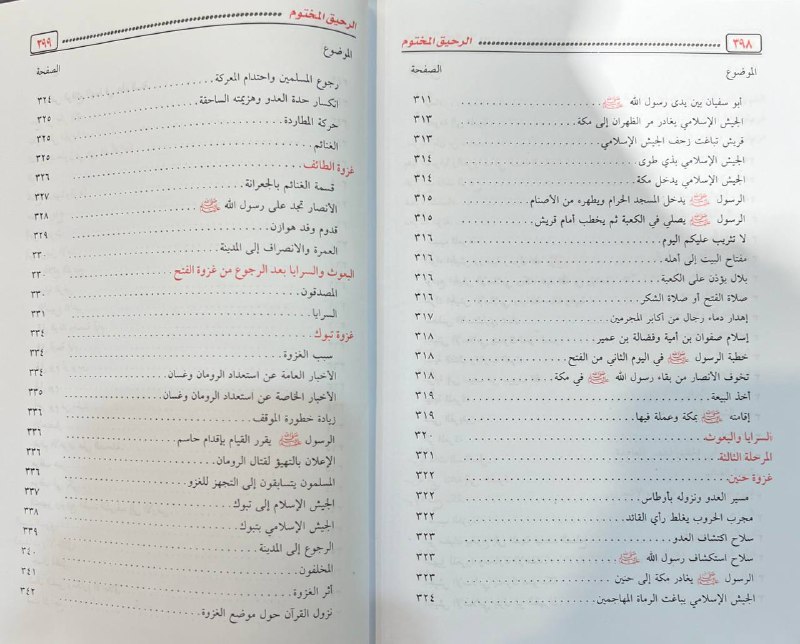 ٣٩٨ الرحيق المختوم
الموضوع الصفحة
أبو سفيان بين يدى رسول الله ﷺ ٣١١
الجيش الإسلامي يغادر مر الظهران إلى مكة ٣١٣
قريش تباغت زحف الجيش الإسلامي ٣١٣
الجيش الإسلامي بذي طوى ٣١٤
الجيش الإسلامي يدخل مكة ٣١٤
الرسول ﷺ يدخل المسجد الحرام ويطهره من الأصنام ٣١٥
الرسول ﷺ يصلي في الكعبة ثم يخطب أمام قريش ٣١٥
لا تثريب عليكم اليوم ٣١٦
مفتاح البيت إلى أهله ٣١٦
بلال يؤذن على الكعبة ٣١٦
صلاة الفتح أو صلاة الشكر ٣١٦
إهدار دماء رجال من أكابر المجرمين ٣١٧
إسلام صفوان بن أمية وفضالة بن عمير ٣١٨
خطبة الرسول ﷺ في اليوم الثاني من الفتح ٣١٨
تخوف الأنصار من بقاء رسول الله ﷺ في مكة ٣١٨
أخذ البيعة ٣١٩
إقامته ﷺ بمكة وعمله فيها ٣١٩
السرايا والبعوث ٣٢٠
المرحلة الثالثة ٣٢١
غزوة حنين ٣٢٢
مسير العدو ونزوله بأوطاس ٣٢٢
مجرب الحروب يغلط رأي القائد ٣٢٢
سلاح اكتشاف العدو ٣٢٣
سلاح استكشاف رسول الله ﷺ ٣٢٣
الرسول ﷺ يغادر مكة إلى حنين ٣٢٣
الجيش الإسلامي يباغت الرماة المهاجمين ٣٢٤
الرحيق المختوم ٣٩٩
الموضوع الصفحة
رجوع المسلمين واحتدام المعركة ٣٢٤
انكسار حدة العدو وهزيمته الساحقة ٣٢٥
حركة المطاردة ٣٢٥
الغنائم ٣٢٥
غزوة الطائف ٣٢٦
قسمة الغنائم بالجعرانة ٣٢٧
الأنصار تجد على رسول الله ﷺ ٣٢٨
قدوم وفد هوازن ٣٢٩
العمرة والانصراف إلى المدينة ٣٣٠
البعوث والسرايا بعد الرجوع من غزوة الفتح ٣٣٠
المصدقون ٣٣٠
السرايا ٣٣١
غزوة تبوك ٣٣٤
سبب الغزوة ٣٣٤
الأخبار العامة عن استعداد الرومان وغسان ٣٣٤
الأخبار الخاصة عن استعداد الرومان وغسان ٣٣٥
زيادة خطورة الموقف ٣٣٦
الرسول ﷺ يقرر القيام بإقدام حاسم ٣٣٦
الإعلان بالتهيؤ لقتال الرومان ٣٣٦
المسلمون يتسابقون إلى التجهز للغزو ٣٣٦
الجيش الإسلام إلى تبوك ٣٣٧
الجيش الإسلامي بتبوك ٣٣٨
الرجوع إلى المدينة ٣٣٩
المخلفون ٣٤٠
أثر الغزوة ٣٤١
نزول القرآن حول موضع الغزوة ٣٤٢